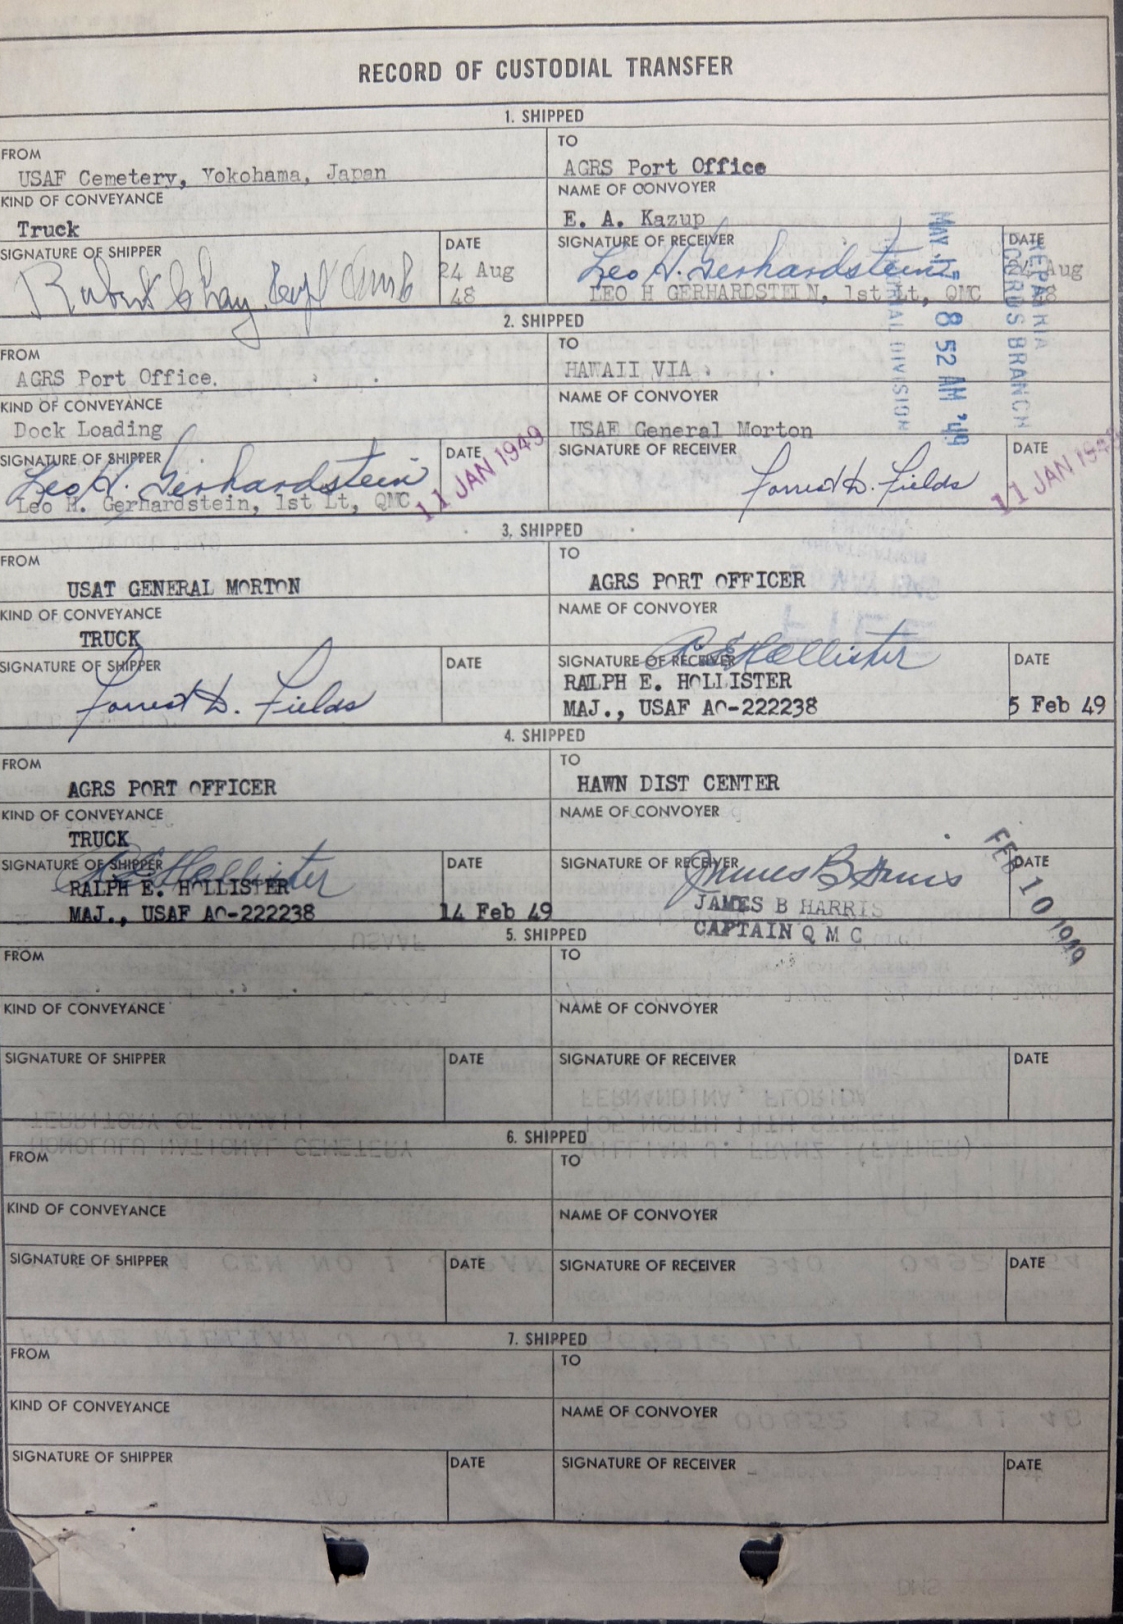 RECORD OF CUSTODIAL TRANSFER
1. SHIPPED
FROM
USAF Cemetery, Yokohama, Japan
TO
AGRS Port Office
KIND OF CONVEYANCE
Truck
NAME OF CONVOYER
E. A. Kazup
SIGNATURE OF SHIPPER
DATE
24 Aug
48
SIGNATURE OF RECEIVER
Leo H. Gerhardstein
LEO H GERHARDSTEIN, 1st Lt, QMC
DATE
24 Aug
48
MAY 17 8 52 AM '49
REPATRIA
RECORDS BRANCH
MEMORIAL DIVISION
2. SHIPPED
FROM
AGRS Port Office.
TO
HAWAII VIA
KIND OF CONVEYANCE
Dock Loading
NAME OF CONVOYER
USAF General Morton
SIGNATURE OF SHIPPER
Leo H. Gerhardstein
Leo H. Gerhardstein, 1st Lt, QMC
DATE
11 JAN 1949
SIGNATURE OF RECEIVER
Forrest D. Fields
DATE
11 JAN 194
3. SHIPPED
FROM
USAT GENERAL MORTON
TO
AGRS PORT OFFICER
KIND OF CONVEYANCE
TRUCK
NAME OF CONVOYER
SIGNATURE OF SHIPPER
Forrest D. Fields
DATE
SIGNATURE OF RECEIVER
R E Hollister
RALPH E. HOLLISTER
MAJ., USAF AO-222238
DATE
5 Feb 49
4. SHIPPED
FROM
AGRS PORT OFFICER
TO
HAWN DIST CENTER
KIND OF CONVEYANCE
TRUCK
NAME OF CONVOYER
SIGNATURE OF SHIPPER
R E Hollister
RALPH E. HOLLISTER
MAJ., USAF AO-222238
DATE
14 Feb 49
SIGNATURE OF RECEIVER
James B Harris
JAMES B HARRIS
CAPTAIN Q M C
DATE
FEB 10 1949
5. SHIPPED
FROM
TO
KIND OF CONVEYANCE
NAME OF CONVOYER
SIGNATURE OF SHIPPER
DATE
SIGNATURE OF RECEIVER
DATE
6. SHIPPED
FROM
TO
KIND OF CONVEYANCE
NAME OF CONVOYER
SIGNATURE OF SHIPPER
DATE
SIGNATURE OF RECEIVER
DATE
7. SHIPPED
FROM
TO
KIND OF CONVEYANCE
NAME OF CONVOYER
SIGNATURE OF SHIPPER
DATE
SIGNATURE OF RECEIVER
DATE